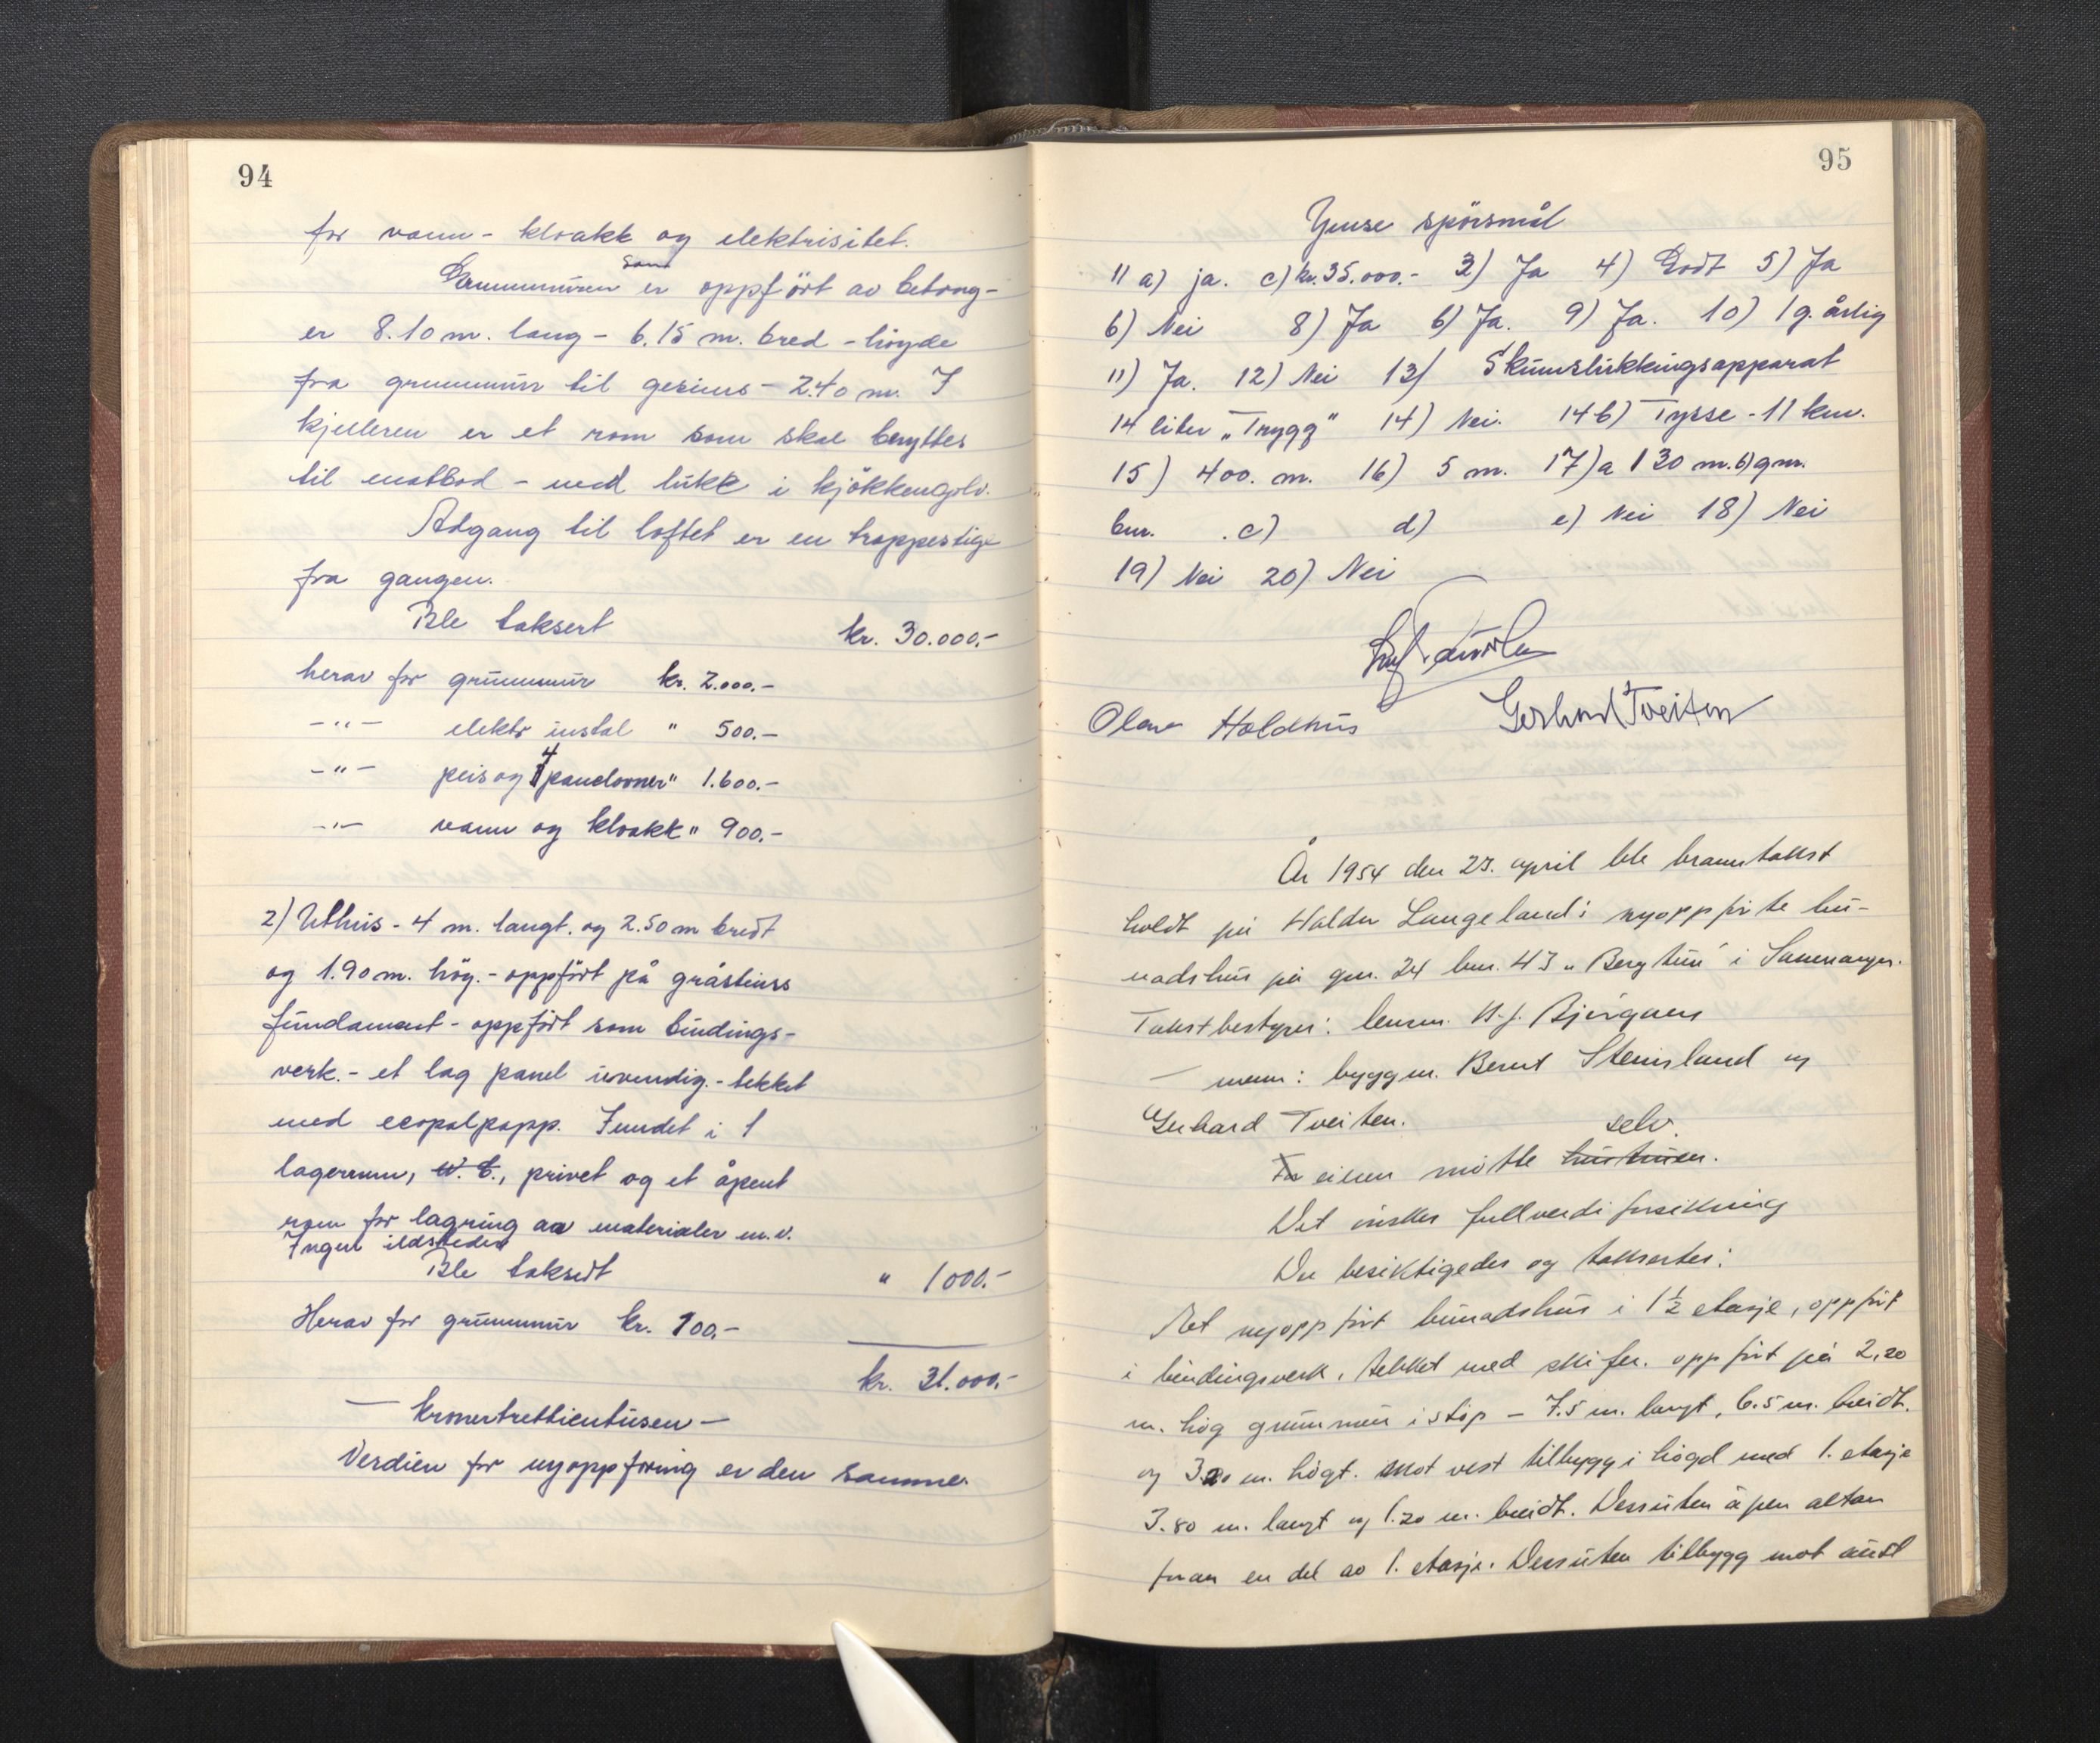 94
for vann - kloakk og elektrisitet.
Grunnmuren som er oppført av betong -
er 8.10 m. lang - 6.15 m. bred - høyde
fra grunnmur til gesims - 2.40 m. I
kjelleren er et rom som skal benyttes
til matbod - med lukk i kjøkkengolv.
Adgang til loftet er en trappestige
fra gangen.
Ble taksert kr. 30.000.-
herav for grunnmur kr. 2.000.-
-"- elektr instal " 500.-
-"- peis og 4 panelovner " 1.600.-
-"- vann og kloakk " 900.-
2) Uthus - 4 m. langt. og 2.50 m bredt
og 1.90 m. høg. - oppført på gråsteins
fundament - oppført som bindings-
verk. - et lag panel utvendig. - tekket
med ecopalpapp. Innredet i 1
lagerrom, W.C., privet og et åpent
rom for lagring av materialer m.v.
Ingen ildsteder
Ble taksert " 1000.-
Herav for grunnmur kr. 100.-
kr. 31.000.-
- kronertrettientusen -
Verdien for nyoppføring er den samme.
95
Ymse spörsmål
1) a) ja. c) kr. 35.000.- 3) Ja 4) Godt 5) Ja
6) Nei 8) Ja b) Ja. 9) Ja. 10) 1 g. årlig
11) Ja. 12) Nei 13) Skumslukkingsapparat
14 liter „Trygg" 14) Nei. 14 b) Tysse - 11 km.
15) 400. m. 16) 5 m. 17) a 130 m. b) gnr.
bnr. c) d) e) Nei 18) Nei
19) Nei 20) Nei
Olav Holdhus Gerhard Tveiten
År 1954 den 23. april ble branntakst
holdt på Haldor Langeland's nyoppførte bu-
nadshus på gnr. 24 bnr. 43 „Bergtun" i Samnanger.
Takstbestyrer: lensm. N. J. Bjørgaas
- menn: byggm. Bernt Steinsland og
Gerhard Tveiten.
For eieren møtte hustruen. selv.
Det ønskes fullverdiforsikring
Der besiktigedes og takserdes:
Et nyoppført bunadshus i 1 1/2 etasje, oppført
i bindingsverk, tekket med skifer. oppført på 2,20
m. høg grunnmur i støp - 7.5 m. langt, 6.5 m. breidt.
og 3.20 m. høgt. Mot vest tilbygg i høgd med 1. etasje
3.80 m. langt og 1.20 m. breidt. Dessuten åpen altan
foran en del av 1. etasje. Dessuten tilbygg mot aust